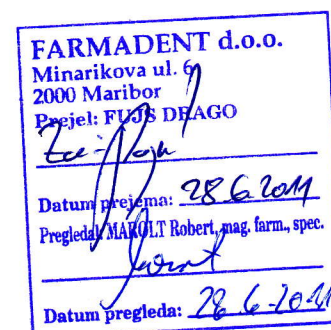 FARMADENT d.o.o.
Minarikova ul. 6
2000 Maribor
Prejel: FUJS DRAGO
Datum prejema: 28 6 2011
Pregledal: MAROLT Robert, mag. farm., spec.
Datum pregleda: 28 6 - 2011